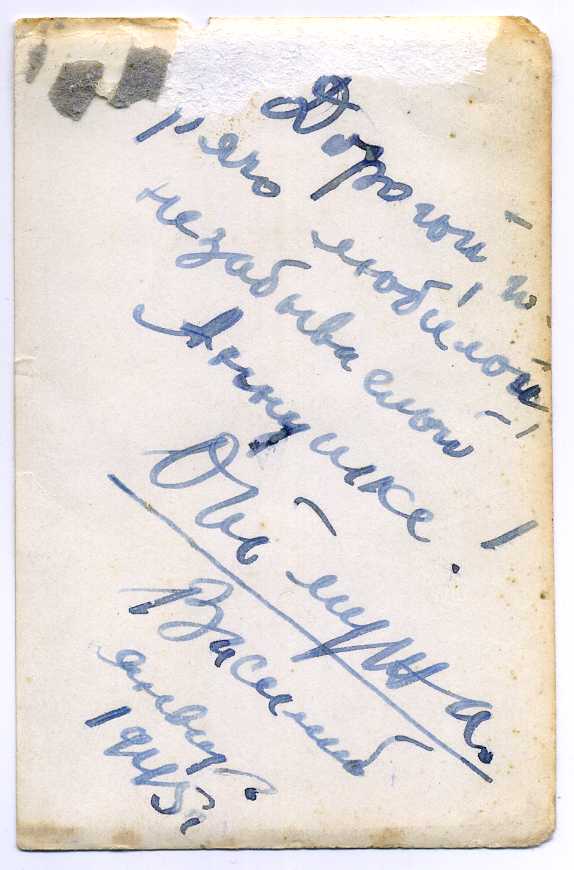 Дорогой го-
рячо любимой!
незабываемой
Аннушке!
От мужа.
Василий
январ.
1945г